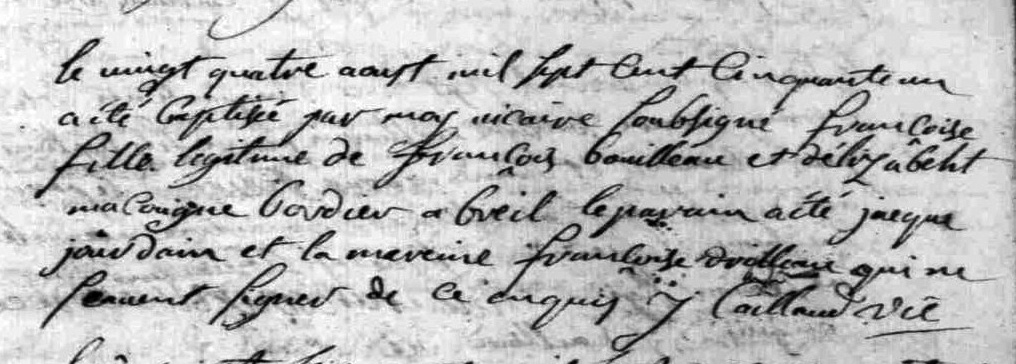 le vingt quatre aoust mil sept cent cinquante un
a été baptisée par moy vicaire soubsigné françoise
fille legitime de françois bouilleau et délizâbeht
macouigne bordier a breil le parain a été jacque
jourdain et la mareine françoise drilleau qui ne
scauent signer de ce enquis J Caillaud vic